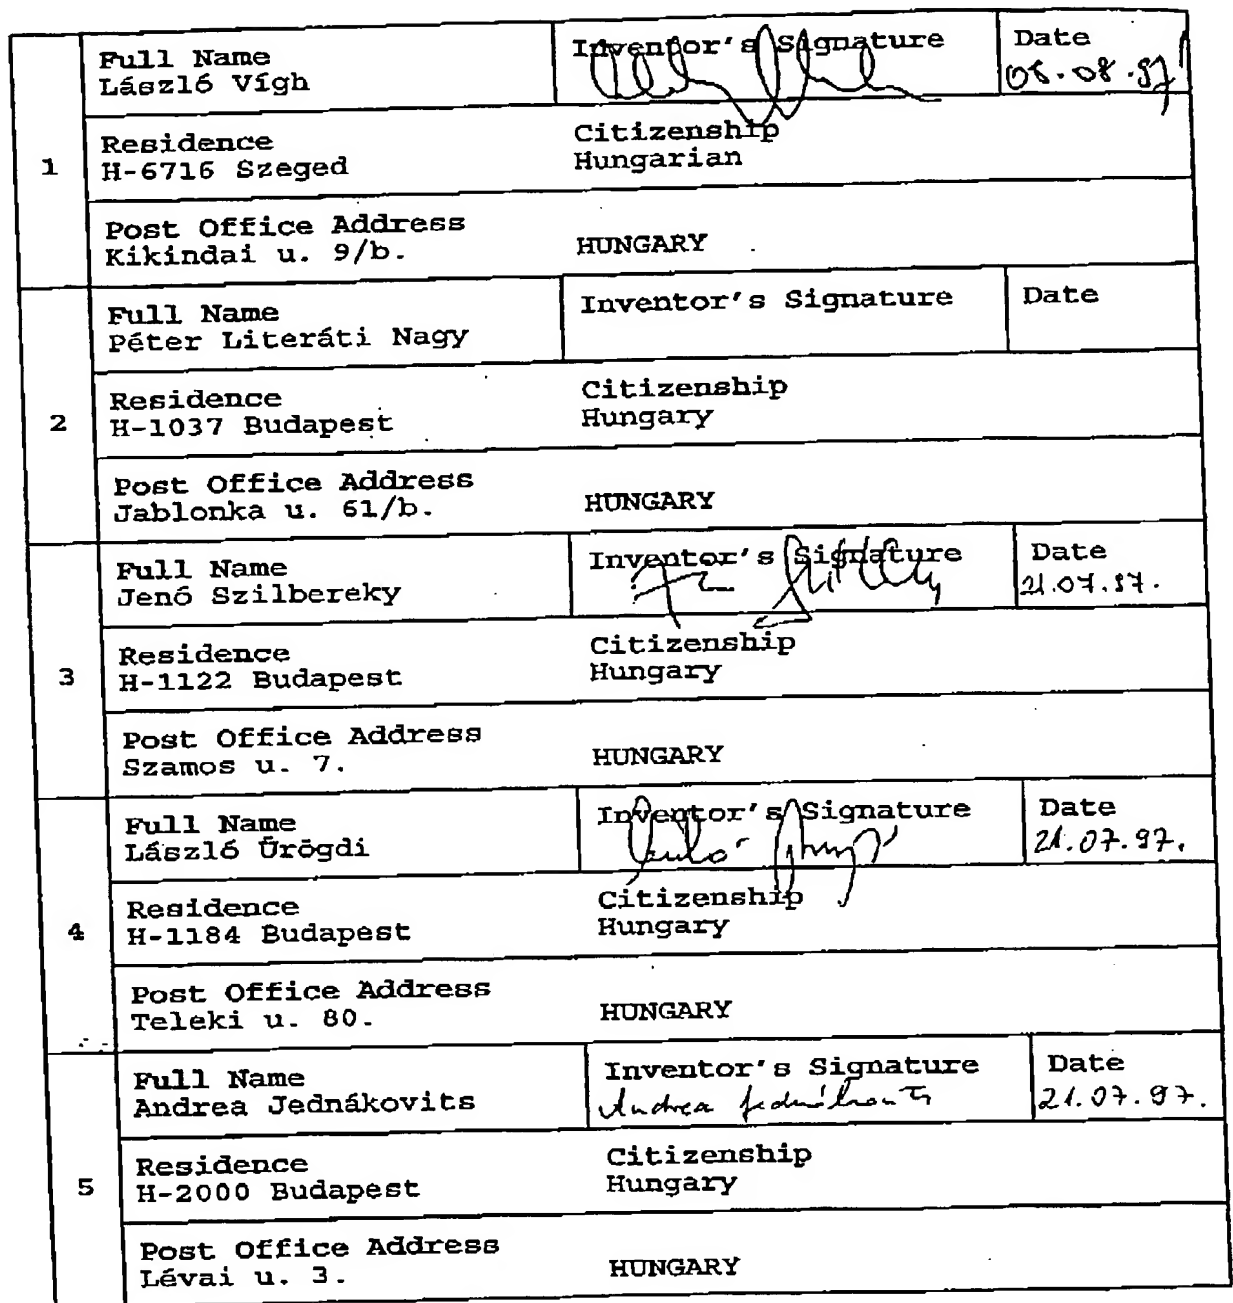 Full Name
László Vígh
Inventor's Signature
Date
06.08.97
1
Residence
H-6716 Szeged
Citizenship
Hungarian
Post Office Address
Kikindai u. 9/b.
HUNGARY
Full Name
Péter Literáti Nagy
Inventor's Signature
Date
2
Residence
H-1037 Budapest
Citizenship
Hungary
Post Office Address
Jablonka u. 61/b.
HUNGARY
Full Name
Jenó Szilbereky
Inventor's Signature
Date
21.07.97.
3
Residence
H-1122 Budapest
Citizenship
Hungary
Post Office Address
Szamos u. 7.
HUNGARY
Full Name
László Ürögdi
Inventor's Signature
Date
21.07.97.
4
Residence
H-1184 Budapest
Citizenship
Hungary
Post Office Address
Teleki u. 80.
HUNGARY
Full Name
Andrea Jednákovits
Inventor's Signature
Andrea Jednákovits
Date
21.07.97.
5
Residence
H-2000 Budapest
Citizenship
Hungary
Post Office Address
Lévai u. 3.
HUNGARY